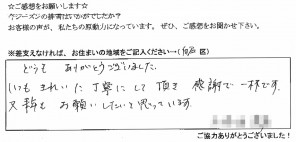 ☆ご感想をお願いします☆
ケンジーメンの接客はいかがでしたか？
お客様の声が、私たちの原動力になっています。ぜひ、ご感想をお聞かせ下さい。
※差支えなければ、お住まいの地域をご記入ください…（ 区）
どうも ありがとうございました。
いつも きれいに 丁寧にして頂き 感謝で一杯です。
又 お願いしたいと思っています。
ご協力ありがとうございました！